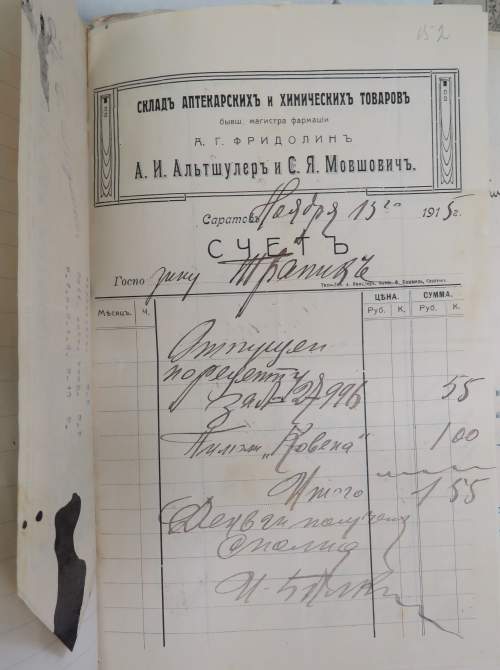 152
СКЛАДЪ АПТЕКАРСКИХЪ и ХИМИЧЕСКИХЪ ТОВАРОВЪ
бывш. магистра фармаціи
А. Г. ФРИДОЛИНЪ
А. И. Альтшулеръ и С. Я. Мовшовичъ.
Саратовъ Ноября 13го 1915г.
СЧЕТЪ
Госпо дину
Мѣсяцъ. Ч. ЦѢНА. Руб. К. СУММА. Руб. К.
Отпущен
по рецепту
за № 27996 55
"Ковена" 1 00
Итого 1 55
Деньги получены
сполна